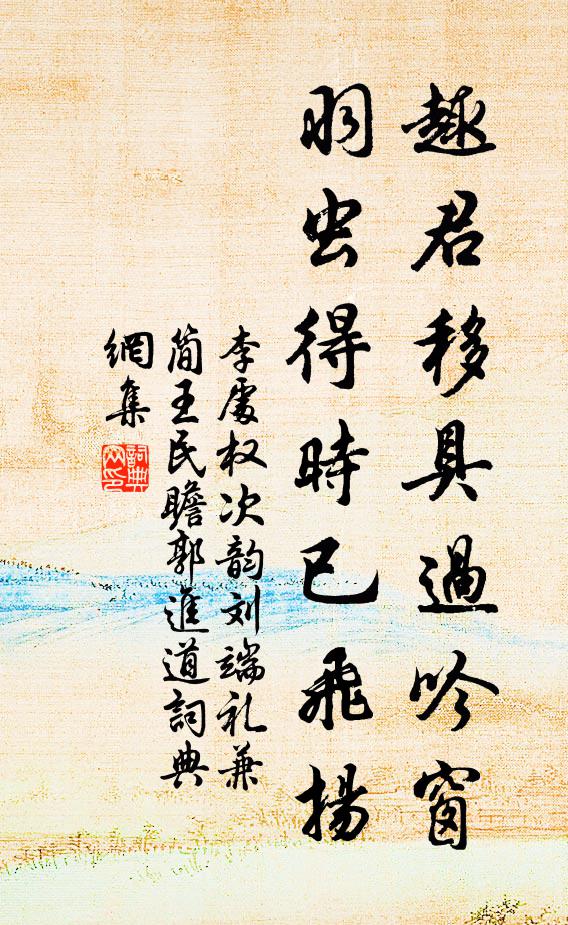 趣君移具過吟窗
羽虫得時已飛揚
李處权次韵刘端礼兼
简王民瞻郭進道詞典
網集
詞典
网印